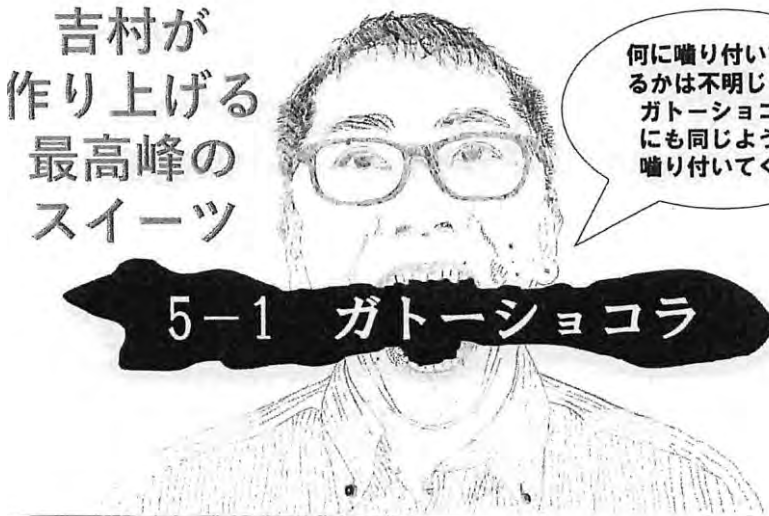 吉村が
作り上げる
最高峰の
スイーツ
何に噛り付い
るかは不明じ
ガトーショコ
にも同じよう
噛り付いてく
5-1 ガトーショコラ